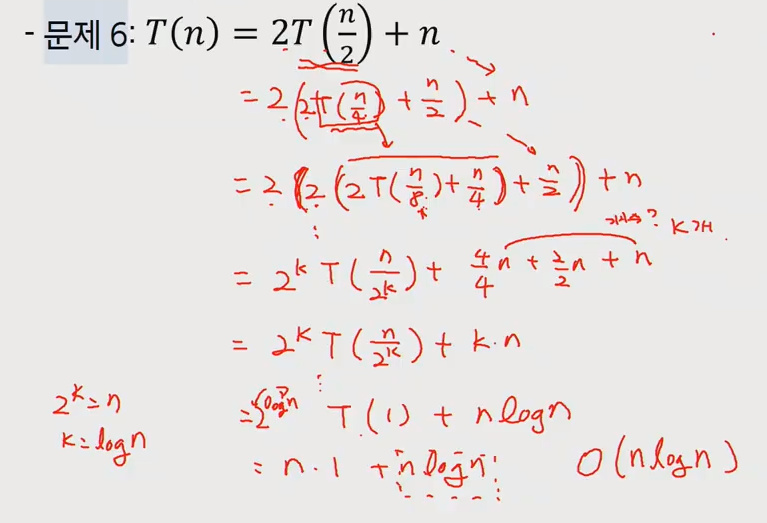 - 문제 6: T(n) = 2T(n/2) + n
= 2(2T(n/4) + n/2) + n
= 2(2(2T(n/8) + n/4) + n/2) + n
개수? K개
= 2^k T(n/2^k) + 4/4 n + 2/2 n + n
= 2^k T(n/2^k) + k·n
2^k = n
= 2^logn T(1) + nlogn
k = logn
= n·1 + nlogn
O(nlogn)